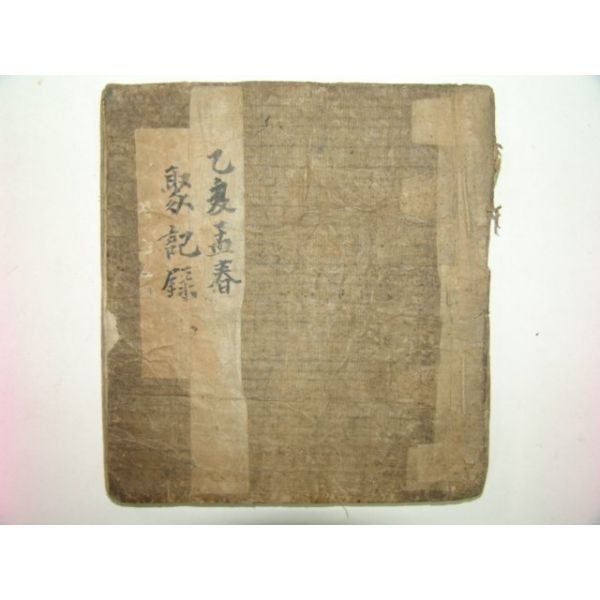 乙亥孟春
聚記錄